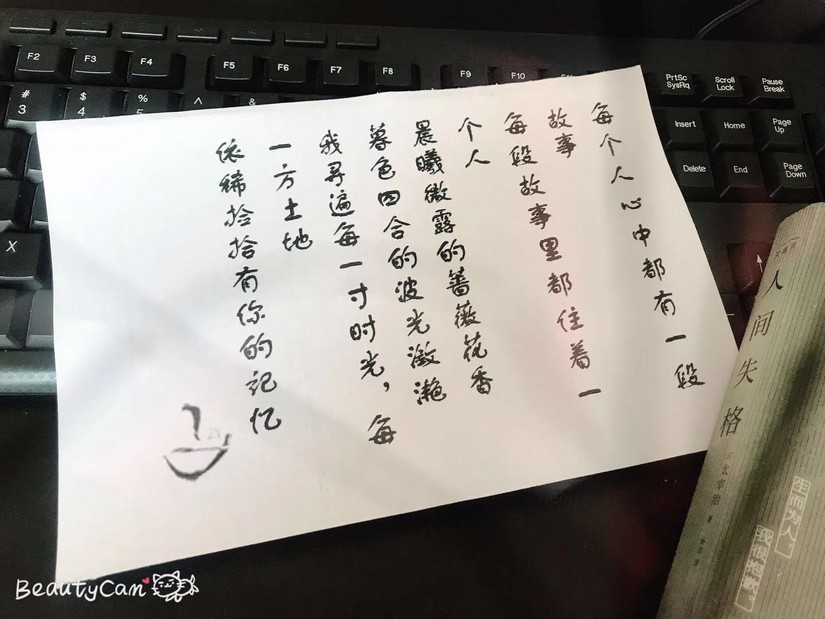 每个人心中都有一段
故事
每段故事里都住着一
个人
晨曦微露的蔷薇花香
暮色四合的波光潋滟
我寻遍每一寸时光，每
一方土地
依稀捡拾有你的记忆
人间失格
太宰治 著
生而为人，
我很抱歉。
F2
F3
F4
F5
F6
F7
F8
F9
F10
PrtSc
SysRq
Scroll
Lock
Pause
Break
#
3
$
4
%
5
^
&
Insert
Home
Page
Up
Delete
End
Page
Down
X
BeautyCam